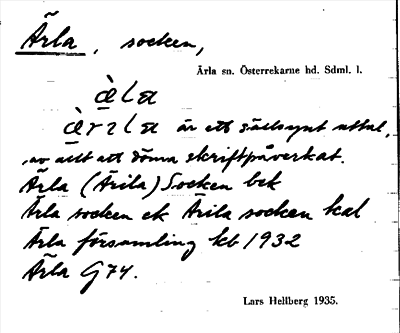 Ärla, socken,
Ärla sn. Österrekarne hd. Sdml. l.
är ett sällsynt uttal,
av allt att döma skriftpåverkat.
Ärla (Ärila) Socken bek
Ärla socken ek Ärila socken kal
Ärla församling kb 1932
Ärla G74.
Lars Hellberg 1935.